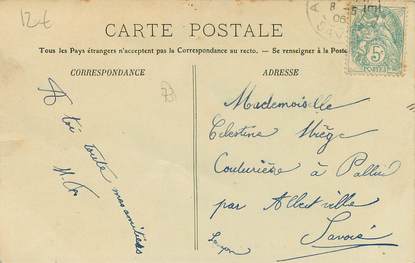 12€
CARTE POSTALE
Tous les Pays étrangers n'acceptent pas la Correspondance au recto. — Se renseigner à la Poste
CORRESPONDANCE
ADRESSE
73
A toi toute mes amitiées
Mademoiselle
Celestine Miège
Couturière à Pallud
par Albertville
Savoie
5
POSTES
8
06